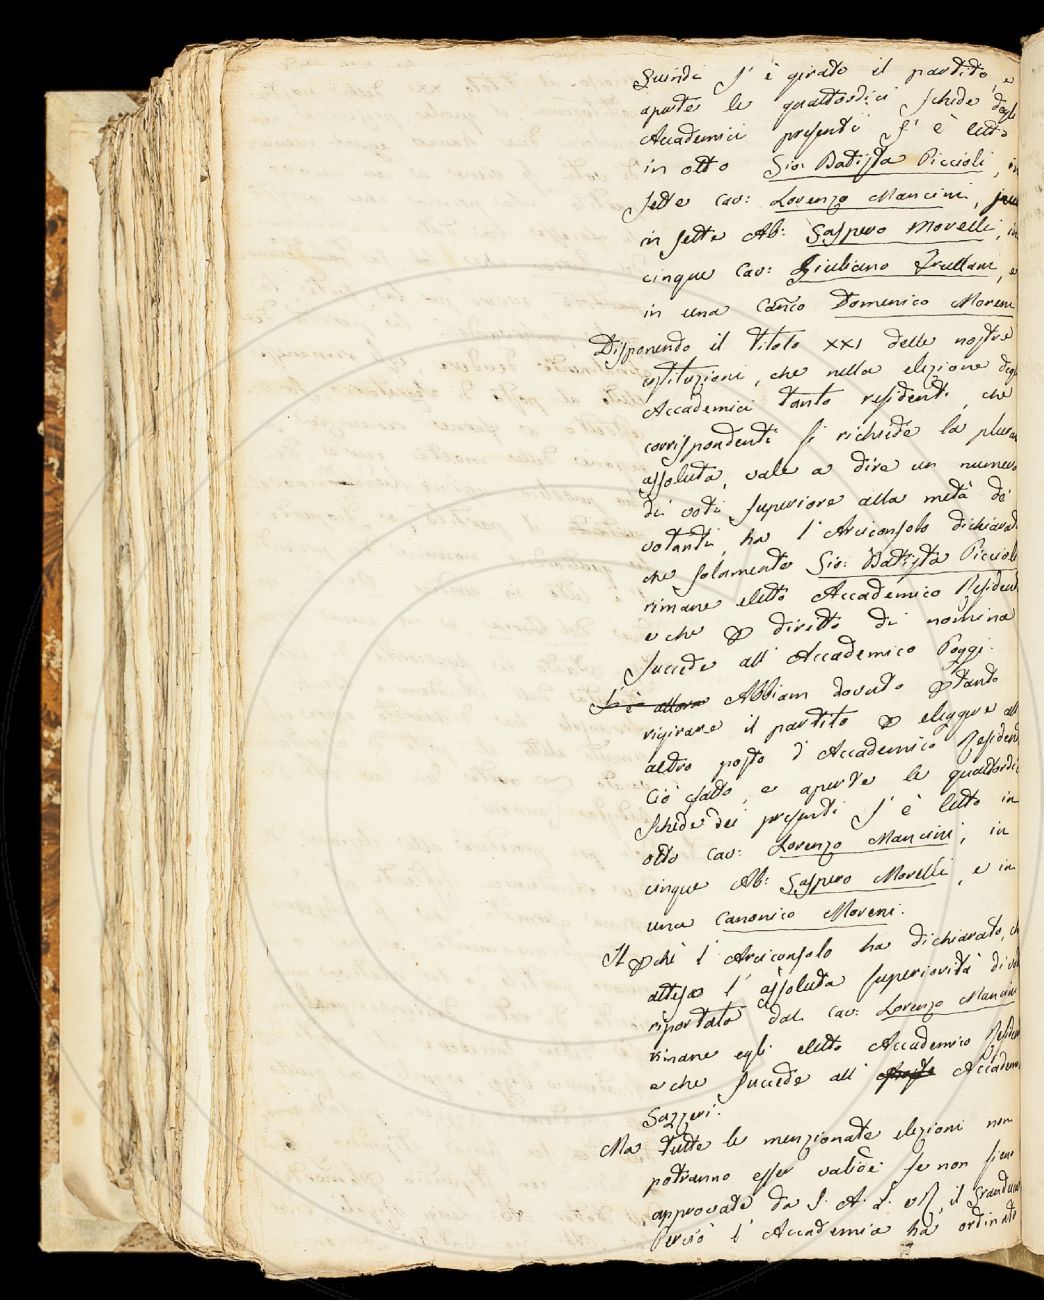 Quindi s' è girato il partito, e
aperte le quattordici schede degli
Accademici presenti s' è letto
in otto Gio: Batista Piccioli, in
sette Cav: Lorenzo Mancini,
in sette Ab: Gaspero Morelli, in
cinque Cav: Giuliano Frullani, e
in una Can:co Domenico Moreni
Disponendo il Titolo XXI delle nostre
costituzioni, che nella elezione degli
Accademici tanto residenti, che
corrispondenti si richiede la plura
assoluta, vale a dire un numero
di voti superiore alla metà de'
votanti, ha l' Arciconsolo dichiarato
che solamente Gio: Batista Piccioli
rimane eletto Accademico Resident
e che p diritto di nomina
succede all' Accademico Poggi.
S' è allora Abbiam dovuto ptanto
rigirare il partito p eleggere all
altro posto d' Accademico Resident
Ciò fatto, e aperte le quattordici
schede dei presenti s' è letto in
otto Cav: Lorenzo Mancini, in
cinque Ab: Gaspero Morelli, e in
una Canonico Moreni.
Il pchè l' Arciconsolo ha dichiarato, ch
attesa l' assoluta superiorità di vo
riportata dal Cav: Lorenzo Mancini
rimane egli eletto Accademico Residen
e che succede all' Accadem
Sazzeri.
Ma tutte le menzionate elezioni non
potranno esser valide se non sieno
approvate da S. A. I. e R. il Granduca
Perciò l' Accademia ha ordinato